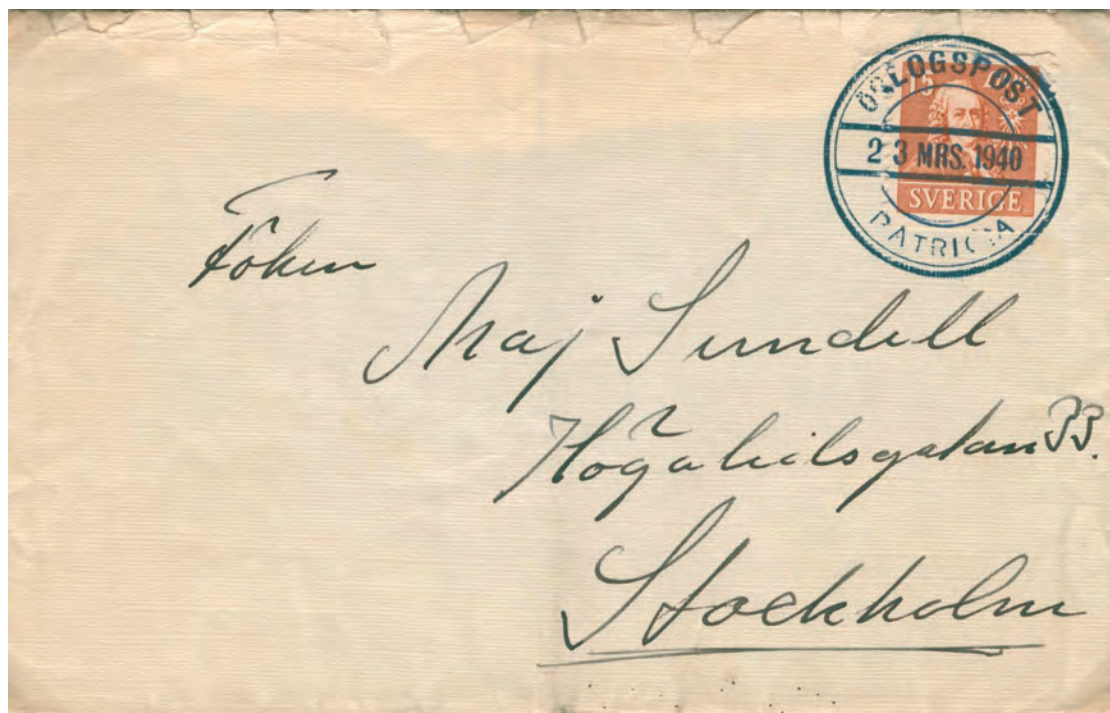 ÖRLOGSPOST
15
23 MRS. 1940
SVERIGE
PATRICIA
Fröken
Maj Sundell
Högalidsgatan 33.
Stockholm